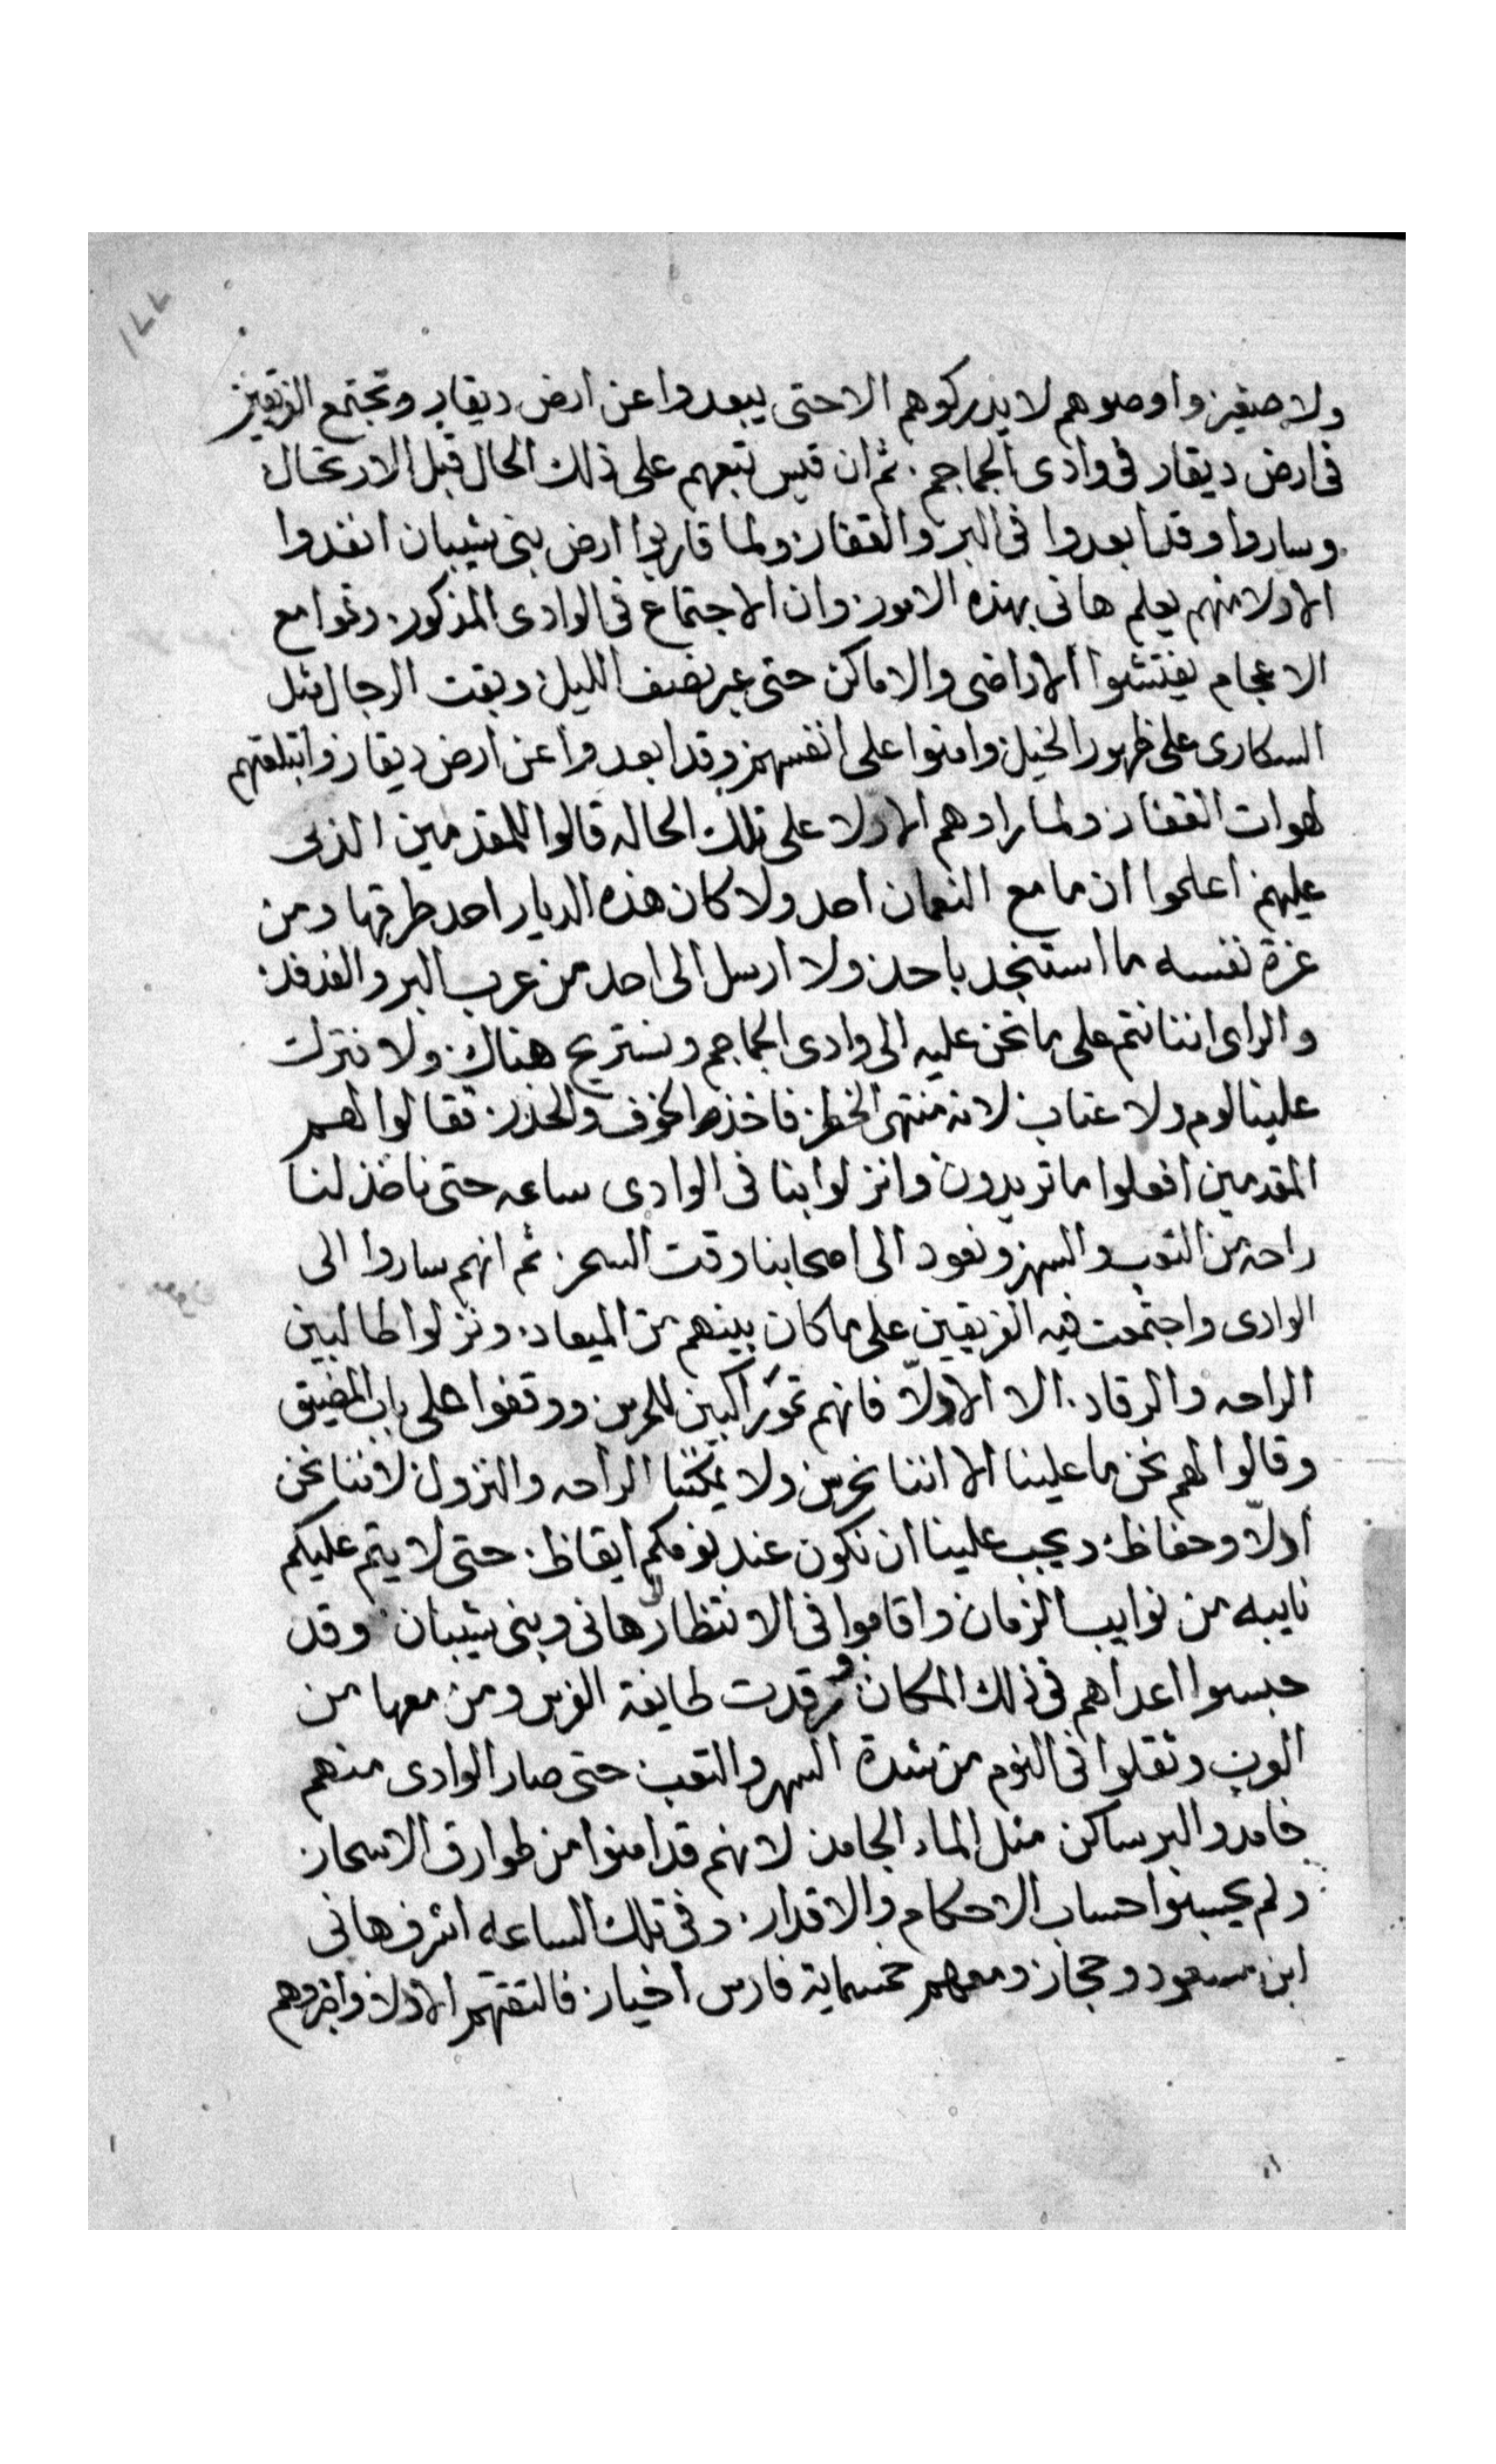 ولا صغير واوصوهم لا يدركوهم الا حتى يبعدوا عن ارض ديقار وتجتمع الفريقين
في ارض ديقار في وادى الجماجم. ثم ان قيس تبعهم على ذلك الحال قبل الارتحال
وساروا وقد ابعدوا في البر والقفار ولما قاربوا ارض بنى شيبان انفدوا
الاولا منهم يعلم هانى بهذه الامور وان الاجتماع في الوادى المذكور. وتموا مع
الاعجام يفتشوا الاراضى والاماكن حتى عبر نصف الليل وبقت الرجال مثل
السكارى على ظهور الخيل وامنوا على انفسهم وقد ابعدوا عن ارض ديقار وابتلعتهم
لهوات القفار ولما راوهم الاولا على تلك الحاله قالوا للمقدمين الذى
عليهم اعلموا ان ما مع النعمان احد ولا كان هذه الديار احد طرقها ومن
عزة نفسه ما استنجد باحد ولا ارسل الى احد من عرب البر والفدفد
والراى اننا نتم على ما نحن عليه الى وادى الجماجم ونستريح هناك ولا نترك
علينا لوم ولا عتاب لانه منتهى الخطر فاخذوا الخوف والحذر فقالوا لهم
المقدمين افعلوا ما تريدون وانزلوا بنا في الوادى ساعه حتى ناخذ لنا
راحه من التعب والسهر ونعود الى اصحابنا وقت السحر ثم انهم ساروا الى
الوادى واجتمعت فيه الفريقين على ما كان بينهم من الميعاد. ونزلوا طالبين
الراحه والرقاد. الا الاولّا فانهم تموا راكبين للحرس ووقفوا على باب المضيق
وقالوا لهم نحن ما علينا الا اننا نحرس ولا يمكننا الراحه والنزول لاننا نحن
ادلّا وحفاظ ويجب علينا ان نكون عند نومكم ايقاظ. حتى لا يتم عليكم
نايبه من نوايب الزمان واقاموا في الانتظار هانى وبنى شيبان وقد
حبسوا اعداهم في ذلك المكان ورقدت طايفة الفرس ومن معها من
العرب وثقلوا في النوم من شدة السهر والتعب حتى صار الوادى منهم
خامد والبر ساكن مثل الماء الجامد لانهم قد امنوا من طوارق الاسحار
ولم يحسبوا حساب الاحكام والاقدار. وفى تلك الساعه اشرف هانى
ابن مسعود وحجار ومعهم خمسماية فارس اخيار فالتقتهم الاولا واخبروهم